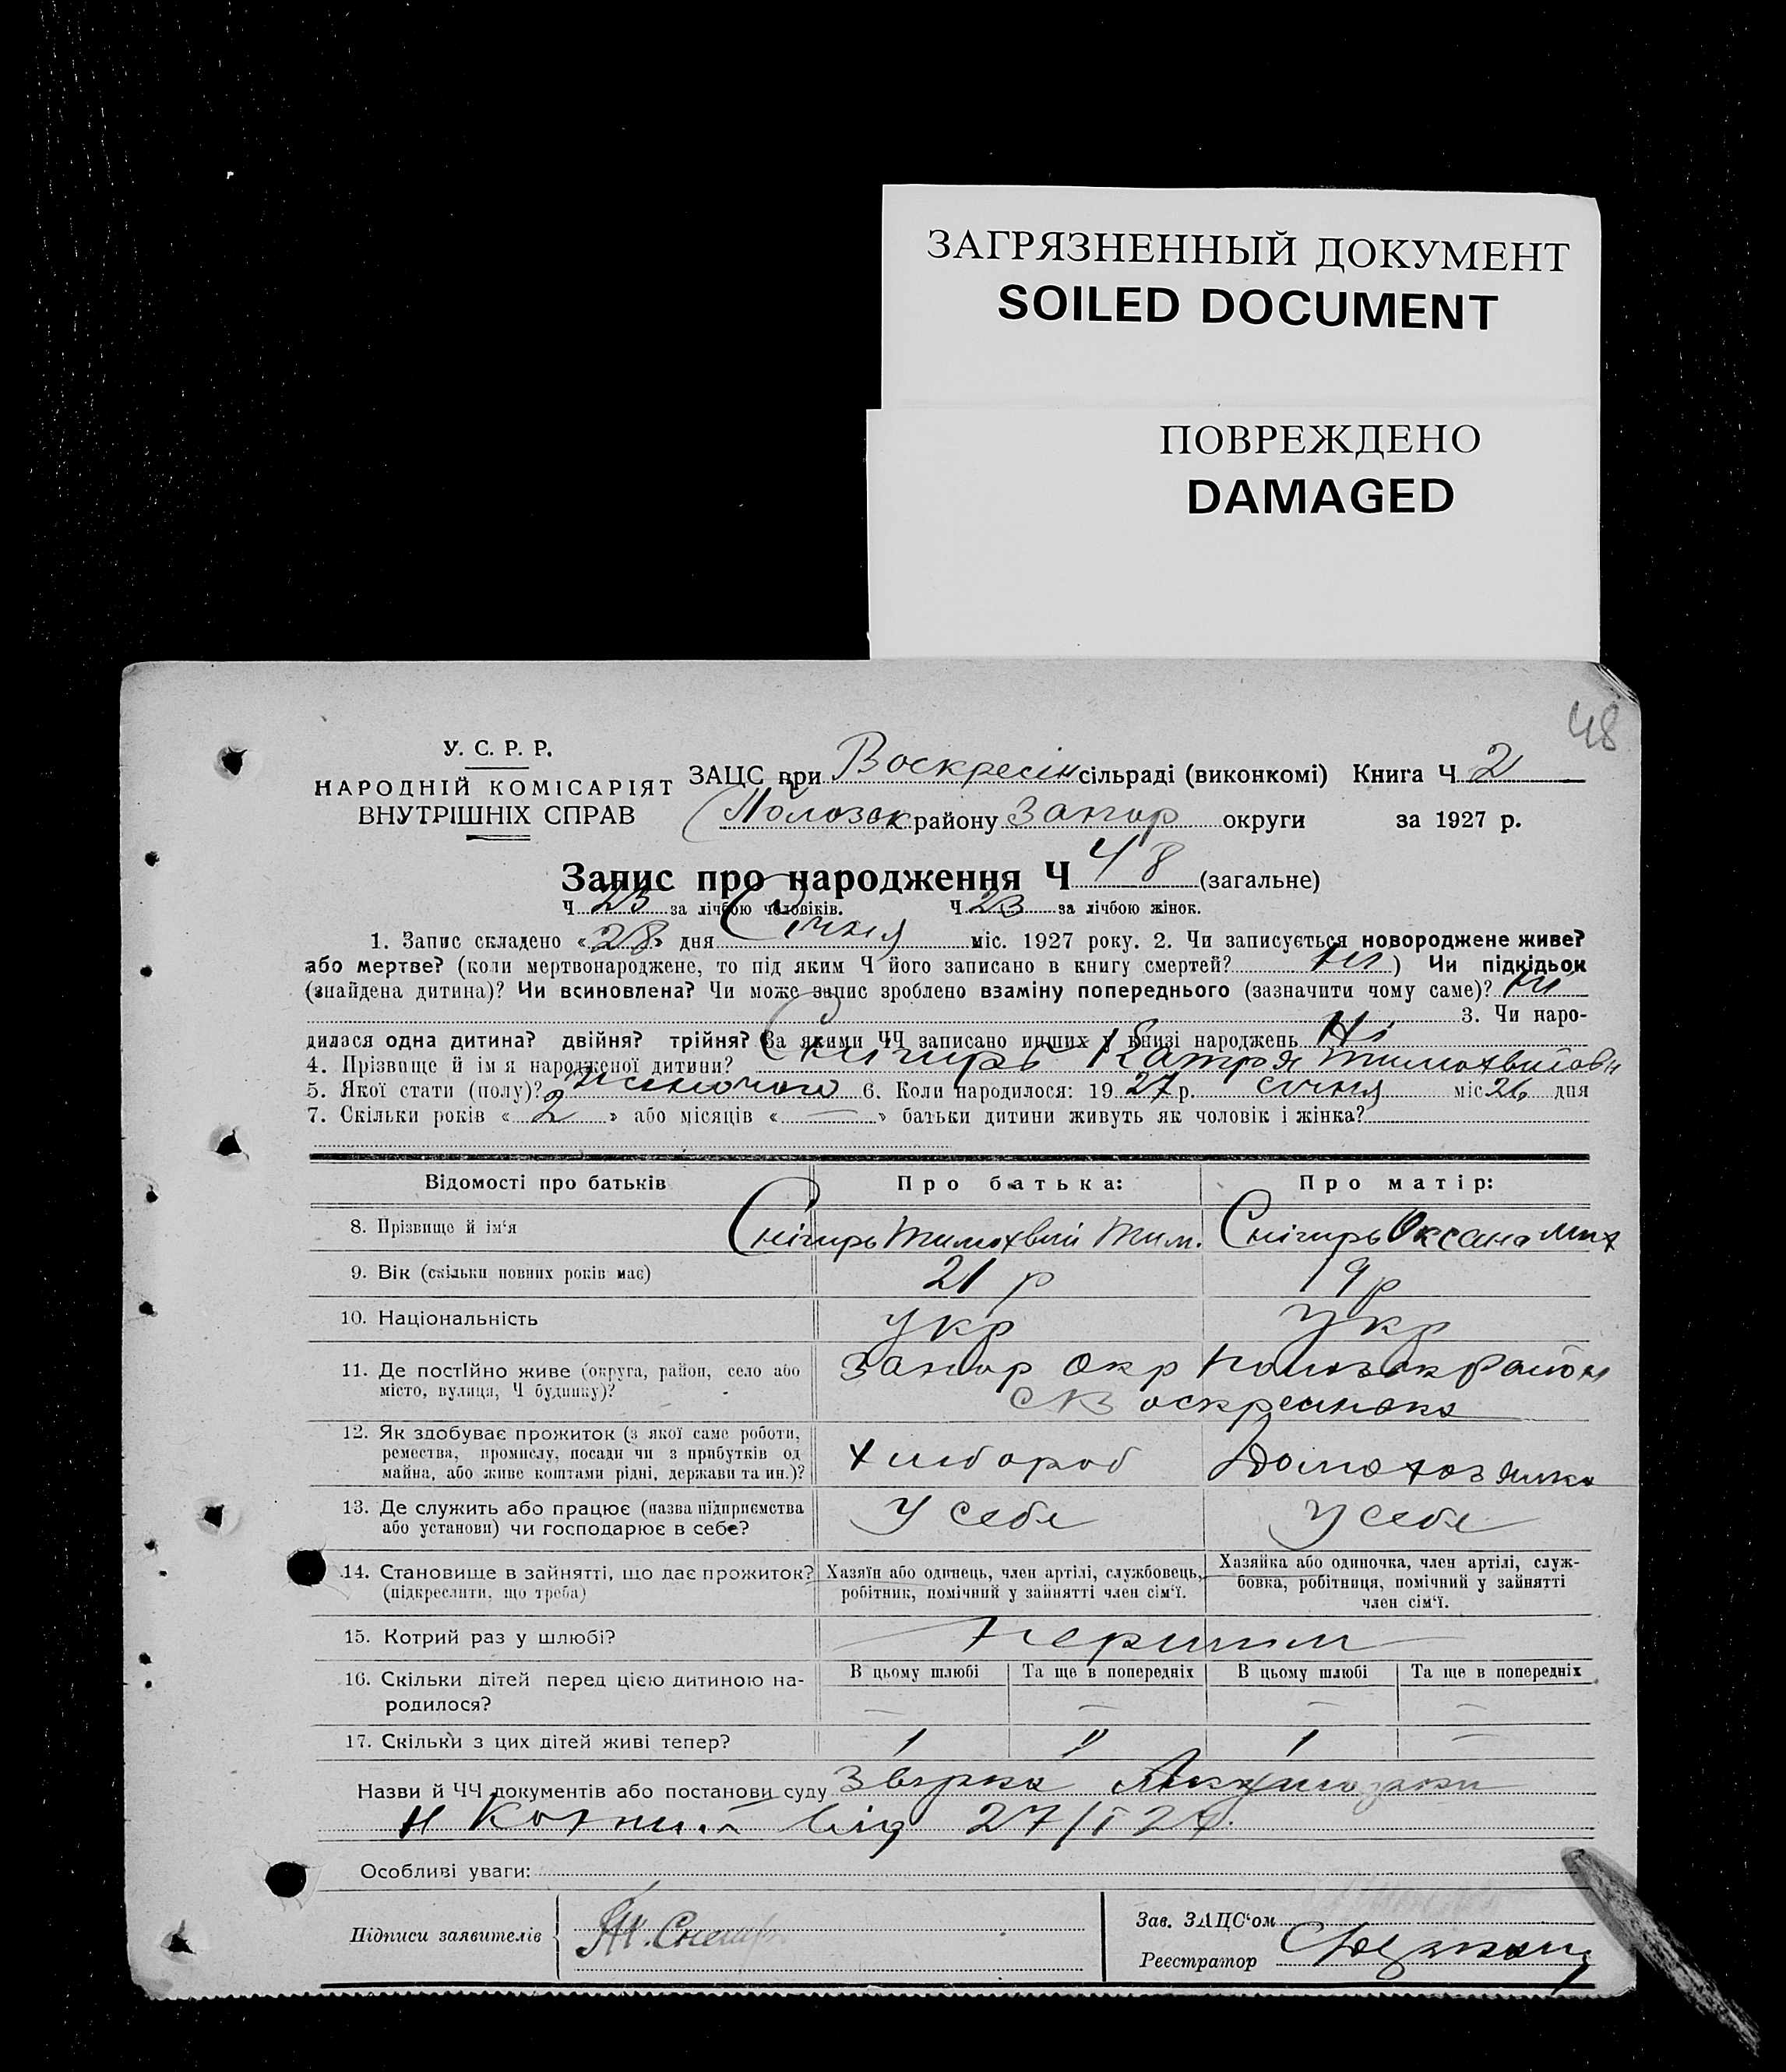 ЗАГРЯЗНЕННЫЙ ДОКУМЕНТ
SOILED DOCUMENT
ПОВРЕЖДЕНО
DAMAGED
48
У. С. Р. Р.
НАРОДНІЙ КОМІСАРІЯТ
ВНУТРІШНІХ СПРАВ
ЗАЦС при Воскресін сільраді (виконкомі) Книга Ч 2
Пологок району Запор округи за 1927 р.
Запис про народження Ч 48 (загальне)
Ч 25 за лічбою чоловіків. Ч 23 за лічбою жінок.
1. Запис складено «28» дня Січня міс. 1927 року. 2. Чи записується новороджене живе?
або мертве? (коли мертвонароджене, то під яким Ч його записано в книгу смертей? Ні) Чи підкідьок
(знайдена дитина)? Чи всиновлена? Чи може запис зроблено взаміну попереднього (зазначити чому саме)? Ні
3. Чи наро-
дилася одна дитина? двійня? трійня? За якими ЧЧ записано инших у книзі народжень Ні
4. Прізвище й ім я народженої дитини? Снігирь Катря Тимохвіївн
5. Якої стати (полу)? жіночого 6. Коли народилося: 1927 р. січня міс 26 дня
7. Скільки років « 2 » або місяців « — » батьки дитини живуть як чоловік і жінка?
Відомості про батьків Про батька: Про матір:
8. Прізвище й ім'я Снігирь Тимохвій Тим. Снігирь Оксана Мих
9. Вік (скільки повних років має) 21 р 19 р
10. Національність укр укр
11. Де постійно живе (округа, район, село або Запор окр Пологок район
місто, вулиця, Ч будинку)? с Воскресінека
12. Як здобуває прожиток (з якої саме роботи,
ремества, промислу, посади чи з прибутків од
майна, або живе коштами рідні, держави та ин.)? Хлібороб Домохозяика
13. Де служить або працює (назва підприємства У себе У себе
або установи) чи господарює в себе?
14. Становище в зайнятті, що дає прожиток? Хазяїн або одинець, член артілі, службовець, Хазяйка або одиночка, член артілі, служ-
(підкреслити, що треба) робітник, помічний у зайнятті член сім'ї. бовка, робітниця, помічний у зайнятті
член сім'ї.
15. Котрий раз у шлюбі? Першим
16. Скільки дітей перед цією дитиною на- В цьому шлюбі Та ще в попередніх В цьому шлюбі Та ще в попередніх
родилося? — — — —
17. Скільки з цих дітей живі тепер? 1 1 —
Назви й ЧЧ документів або постанови суду
від 27/I 27.
Особливі уваги:
Підписи заявителів Т. Снегир
Зав. ЗАЦС'ом
Реєстратор